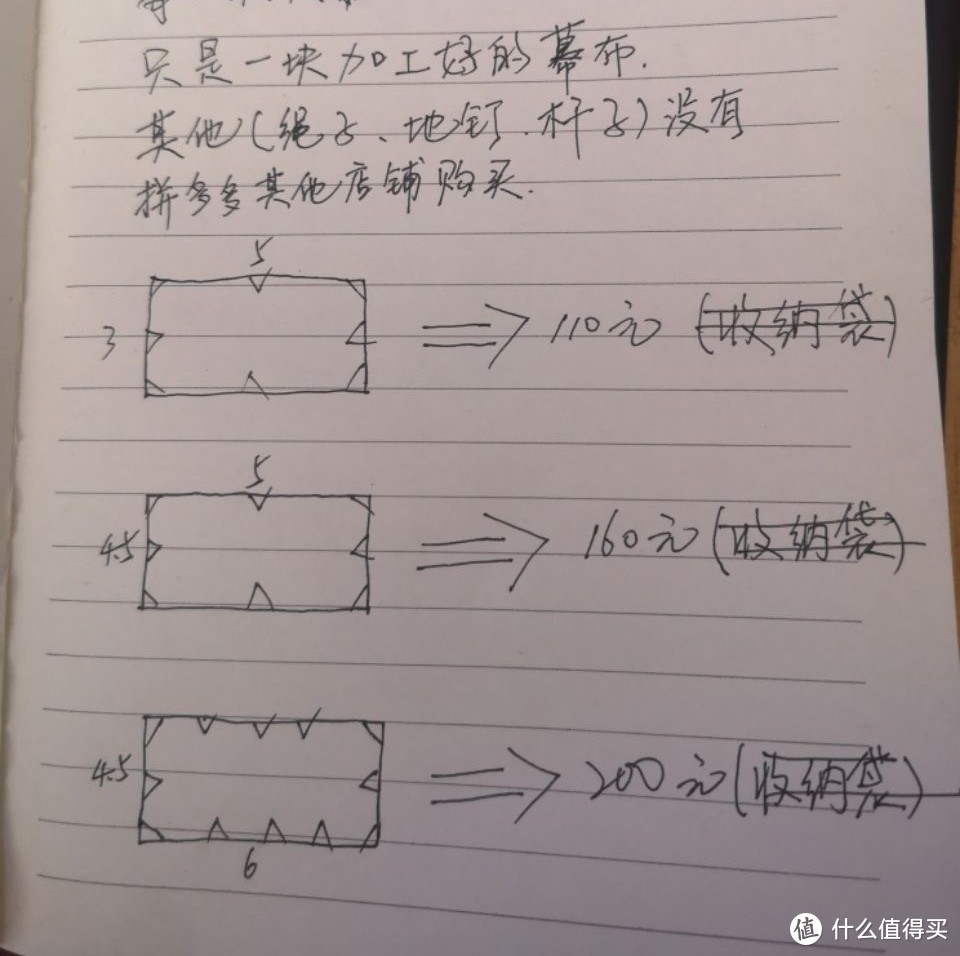 只是一块加工好的幕布.
其他(绳子、地钉、杆子)没有
拼多多其他店铺购买.
5
3
110元 (收纳袋)
5
4.5
160元(收纳袋)
4.5
200元(收纳袋)
6
值 什么值得买